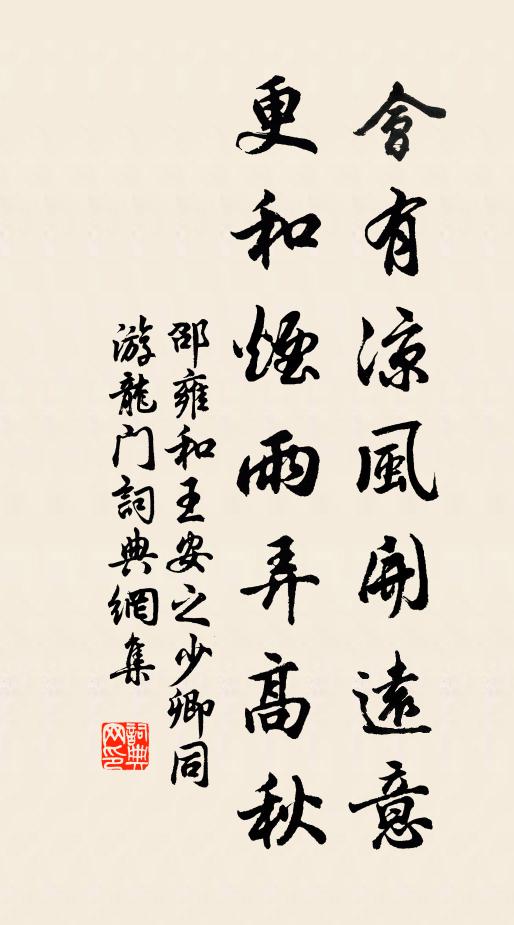 會有涼風開遠意
更和煙雨弄高秋
邵雍和王安之少卿同
游龍門詞典網集
詞典
网印